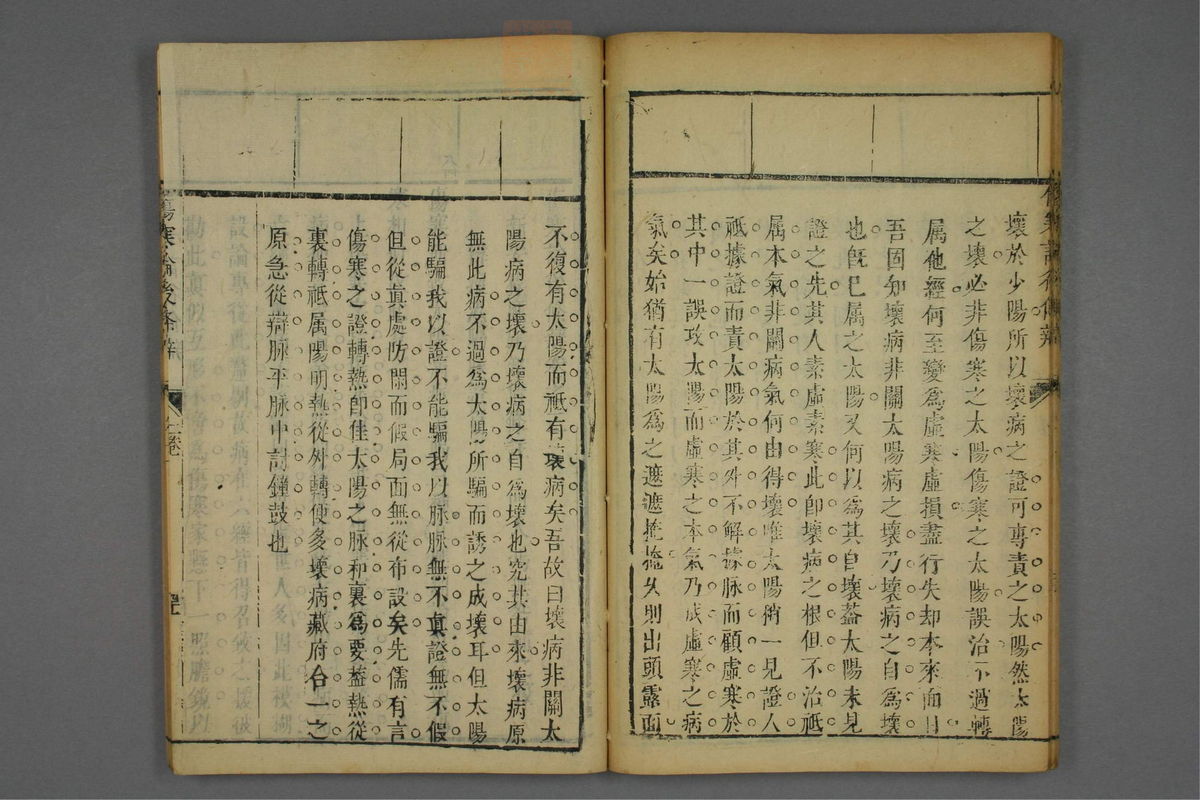 壞於少陽所以壞病之證可專責之太陽然太陽
之壞必非傷寒之太陽傷寒之太陽誤治不過轉
属他經何至變爲虛寒虛損盡行失却本來面目
吾固知壞病非關太陽病之壞乃壞病之自爲壞
也旣已属之太陽又何以爲其自壞蓋太陽未見
證之先其人素虛素寒此卽壞病之根但不治祗
属本氣非關病氣何由得壞唯太陽稍一見證人
祗據證而責太陽於其外不解據脉而顧虛寒於
其中一誤攻太陽而虛寒之本氣乃成虛寒之病
氣矣始猶有太陽爲之遮遮掩掩久則出頭露面
不復有太陽而祗有壞病矣吾故曰壞病非關太
陽病之壞乃壞病之自爲壞也究其由來壞病原
無此病不過爲太陽所騙而誘之成壞耳但太陽
能騙我以證不能騙我以脉脉無不真證無不假
但從真處防閑而假局面無從布設矣先儒有言
傷寒之證轉熱卽佳太陽之脉和裏爲要蓋熱從
裏轉祗属陽明熱從外轉便多壞病藏府合一之
原急從辯脉平脉中討鐘鼓也
傷寒論後條辨